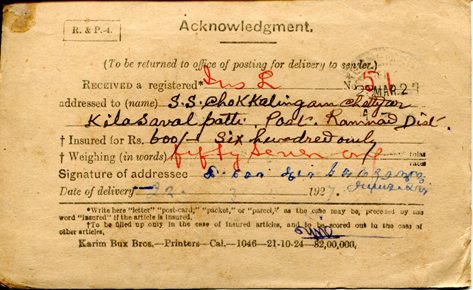 R. & P.-4.
Acknowledgment.
(To be returned to office of posting for delivery to sender.)
RECEIVED a registered* Ins L No 51
MAR 27
addressed to (name) S. S. Chokkalingam Chettyar
Kilasaval patti, Post. Ramnad Dist.
† Insured for Rs. 600/- Six hundred only
† Weighing (in words) fifty seven
Signature of addressee
Date of delivery 1927
*Write here "letter" "post-card," "packet," or "parcel," as the case may be, preceded by the
word "insured" if the article is insured.
†To be filled up only in the case of insured articles, and to be scored out in the case of
other articles.
Karim Bux Bros.—Printers—Cal.—1046—21-10-24—82,00,000.